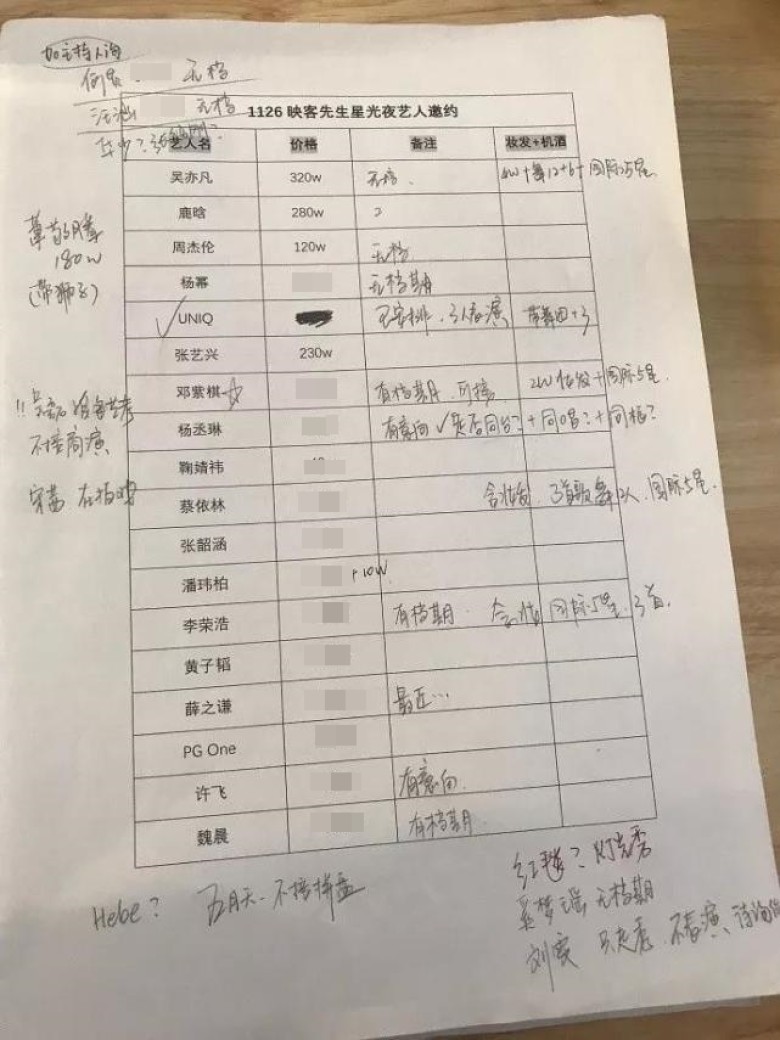 加主持人询
何炅 无档
汪涵 无档
华少?
1126 映客先生星光夜艺人邀约
艺人名 价格 备注 妆发+机酒
吴亦凡 320w 无档. 4W+舞12+6+国际5星
鹿晗 280w
周杰伦 120w 无档
杨幂 无档期
UNIQ 可安排. 3人表演 带舞团+3
张艺兴 230w
邓紫棋 有档期. 可接 2W妆发+国际5星
杨丞琳 有意向 ✓是否同台?+同唱?+同框?
鞠婧祎
蔡依林 含妆发. 3首歌舞 人. 国际5星.
张韶涵
潘玮柏 +10W
李荣浩 有档期. 含妆 国际5星. 3首.
黄子韬
薛之谦 最近…
PG One
许飞 有意向
魏晨 有档期.
180w
(带狮子)
!! 吴磊 准备艺考
不接商演
宋茜 在拍戏
Hebe? 五月天. 不接拼盘
红楼? 灯光秀
奚梦瑶 无档期
刘雯 只走秀. 不表演、待询价